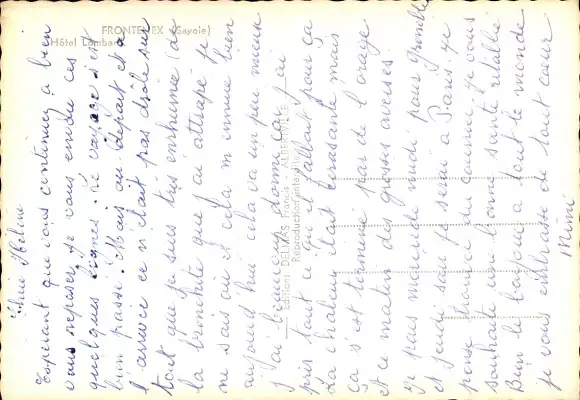 FRONTENEX (Savoie)
Hôtel Lombard
Éditions DELMAS Francis - ALBERTVILLE
Reproduction interdite
Chère Hélène
Espérant que vous continuez à bien
vous reposer, je vous envoie ces
quelques lignes. Le voyage s'est
bien passé. Mais au départ et à
l'arrivée ce n'était pas drôle sur
tout que je suis très enrhumée (de
la bronchite que j'ai attrapé je
ne sais où et cela m'ennuie bien
aujourd'hui cela va un peu mieux
J'ai beaucoup dormi car j'ai
pris tout ce qu'il fallait pour ça
La chaleur était écrasante mais
ça s'est terminé par de l'orage
et ce matin des grosses averses
Je pars mercredi midi pour Grenoble
et jeudi soir je serai à Paris. Je
pense du comme je vous
souhaite une bonne santé rétablie
Bien le bonjour à tout le monde
je vous embrasse de tout cœur
Mimi